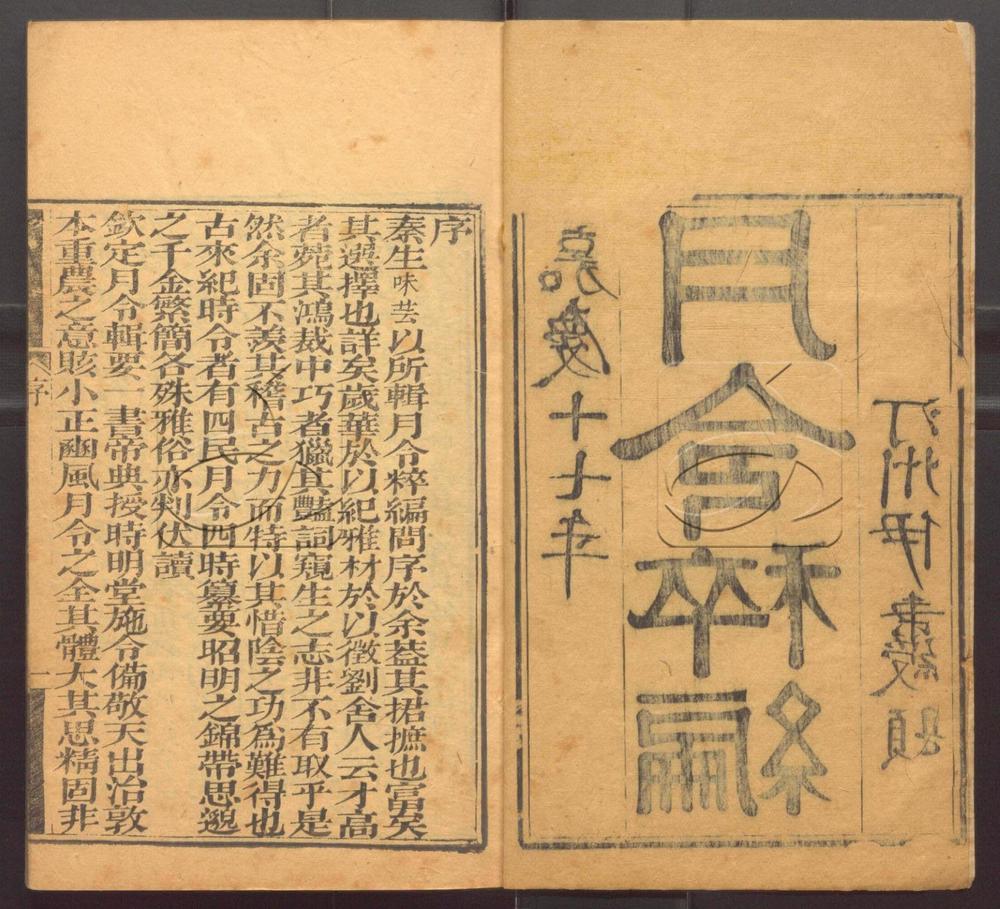 嘉慶十七年
月令粹編
汀州伊秉綬題
序
秦生味芸以所輯月令粹編問序於余葢其捃摭也富矣
其選擇也詳矣歲華於以紀雅材於以徵劉舍人云才高
者菀其鴻裁中巧者獵其豔詞窺生之志非不有取乎是
然余固不羨其稽古之力而特以其惜陰之功為難得也
古來紀時令者有四民月令四時纂要昭明之錦帶思邈
之千金繁簡各殊雅俗亦判伏讀
欽定月令輯要一書帝典授時明堂施令備敬天出治敦
本重農之意賅小正豳風月令之全其體大其思精固非
序 一